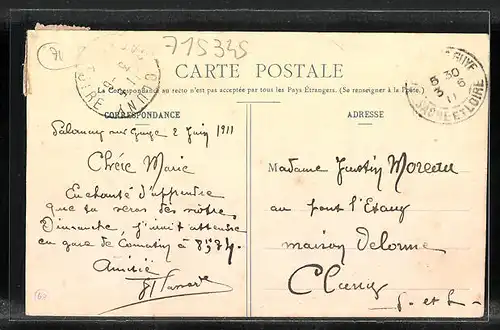 715345
CARTE POSTALE
La Correspondance au recto n'est pas acceptée par tous les Pays Étrangers. (Se renseigner à la Poste.)
CORRESPONDANCE
ADRESSE
5 30
3 6
11
SAÔNE-ET-LOIRE
CLUNY
Salornay sur Guye 2 Juin 1911
Chère Marie
Enchanté d'apprendre
que tu seras des nôtres
Dimanche, j'irai t'attendre
en gare de Cormatin à 8h 34.
Amitié
Madame Justin Moreau
au pont l'Etang
maison Delorme
Cluny
S. et L.